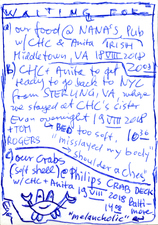 WAITING FOR
a) our food @ NANA'S, Pub
w/CHC & Anita IRISH
Middletown, VA 18 VIII 2018
b) CHC + Anita to get 2003
ready to go back to NYC
from STERLING, VA, where
we stayed at CHC's sister
Eva overnight 19 VIII 2018
+TOM → BED too soft, 1036
ROGERS "misslayed my body"
→ shoulder aches
c) our crabs
(soft shell) @ Philips CRAB DECK
w/CHC + Anita 19 VIII 2018 Balti-
1408 more
"melancholic"